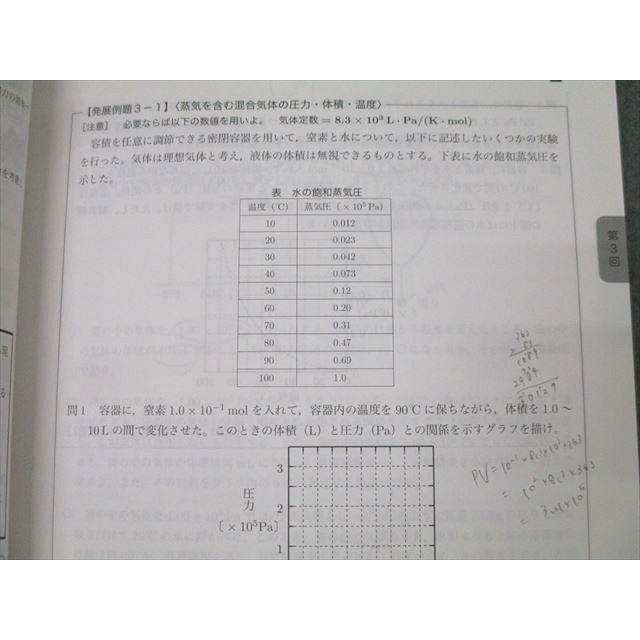 【発展例題3－1】〈蒸気を含む混合気体の圧力・体積・温度〉
［注意］ 必要ならば以下の数値を用いよ。 気体定数＝8.3×10³ L・Pa/(K・mol)
容積を任意に調節できる密閉容器を用いて，窒素と水について，以下に記述したいくつかの実験
を行った。気体は理想気体と考え，液体の体積は無視できるものとする。下表に水の飽和蒸気圧を
示した。
表 水の飽和蒸気圧
温度（℃） 蒸気圧（×10⁵Pa）
10 0.012
20 0.023
30 0.042
40 0.073
50 0.12
60 0.20
70 0.31
80 0.47
90 0.69
100 1.0
第3回
問1 容器に，窒素1.0×10⁻¹molを入れて，容器内の温度を90℃に保ちながら，体積を1.0～
10Lの間で変化させた。このときの体積（L）と圧力（Pa）との関係を示すグラフを描け。
3
圧力
2
〔×10⁵Pa〕
1
PV = 10⁻¹×8.3×10³×363
= 10²×8.3×363
= 3.01×10⁵